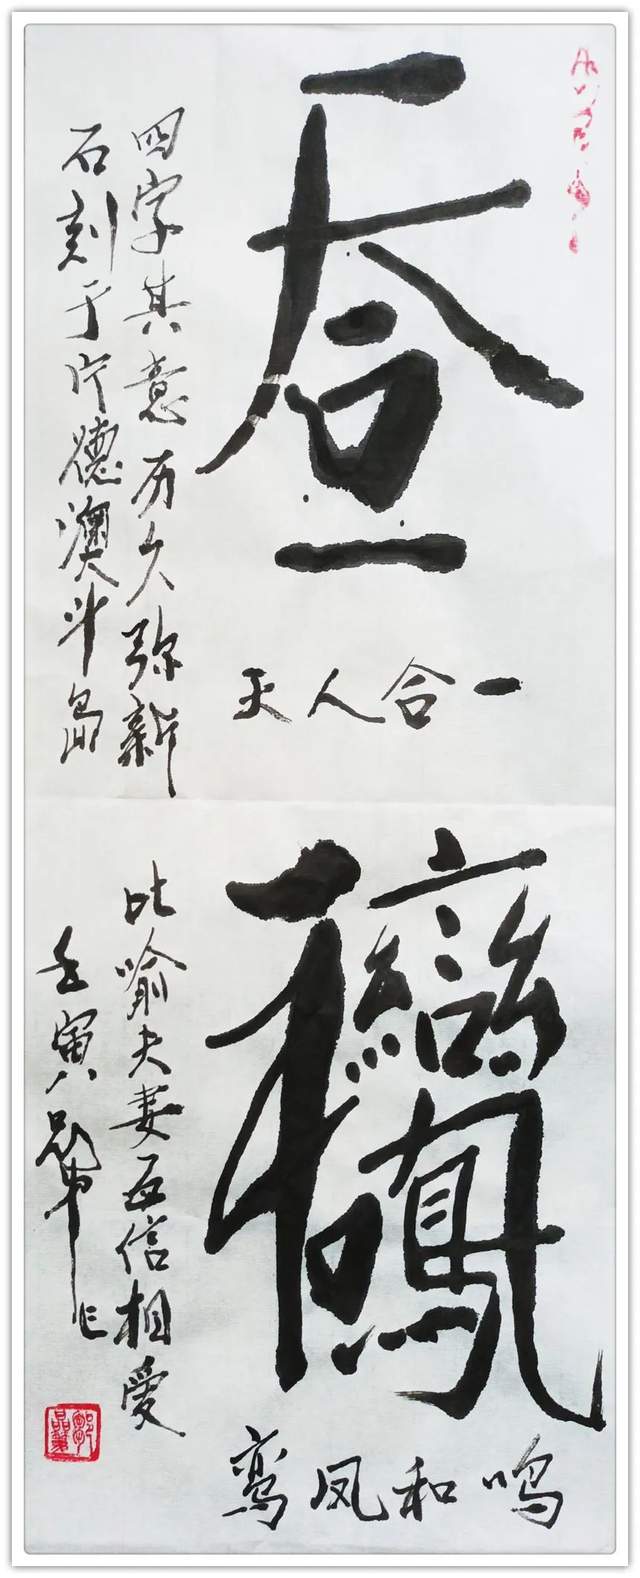 天人合一
四字其意历久弥新
石刻于宁德澳斗岛
鸾凤和鸣
比喻夫妻互信相爱
壬寅